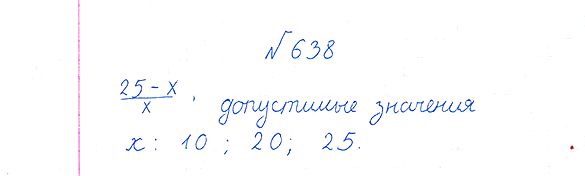 №638
25-x/x, допустимые значения
x: 10; 20; 25.